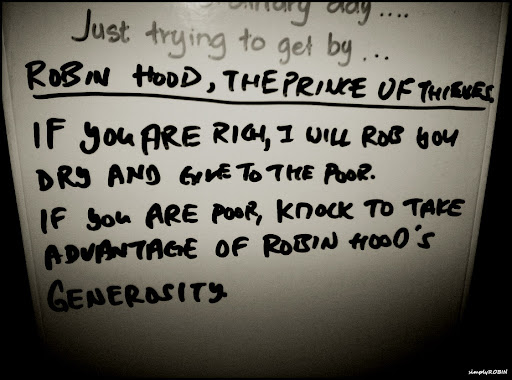 ordinary day....
Just trying to get by...
ROBIN HOOD, THE PRINCE OF THIEVES
IF YOU ARE RICH, I WILL ROB YOU
DRY AND GIVE TO THE POOR.
IF YOU ARE POOR, KNOCK TO TAKE
ADVANTAGE OF ROBIN HOOD'S
GENEROSITY.
simplyROBIN